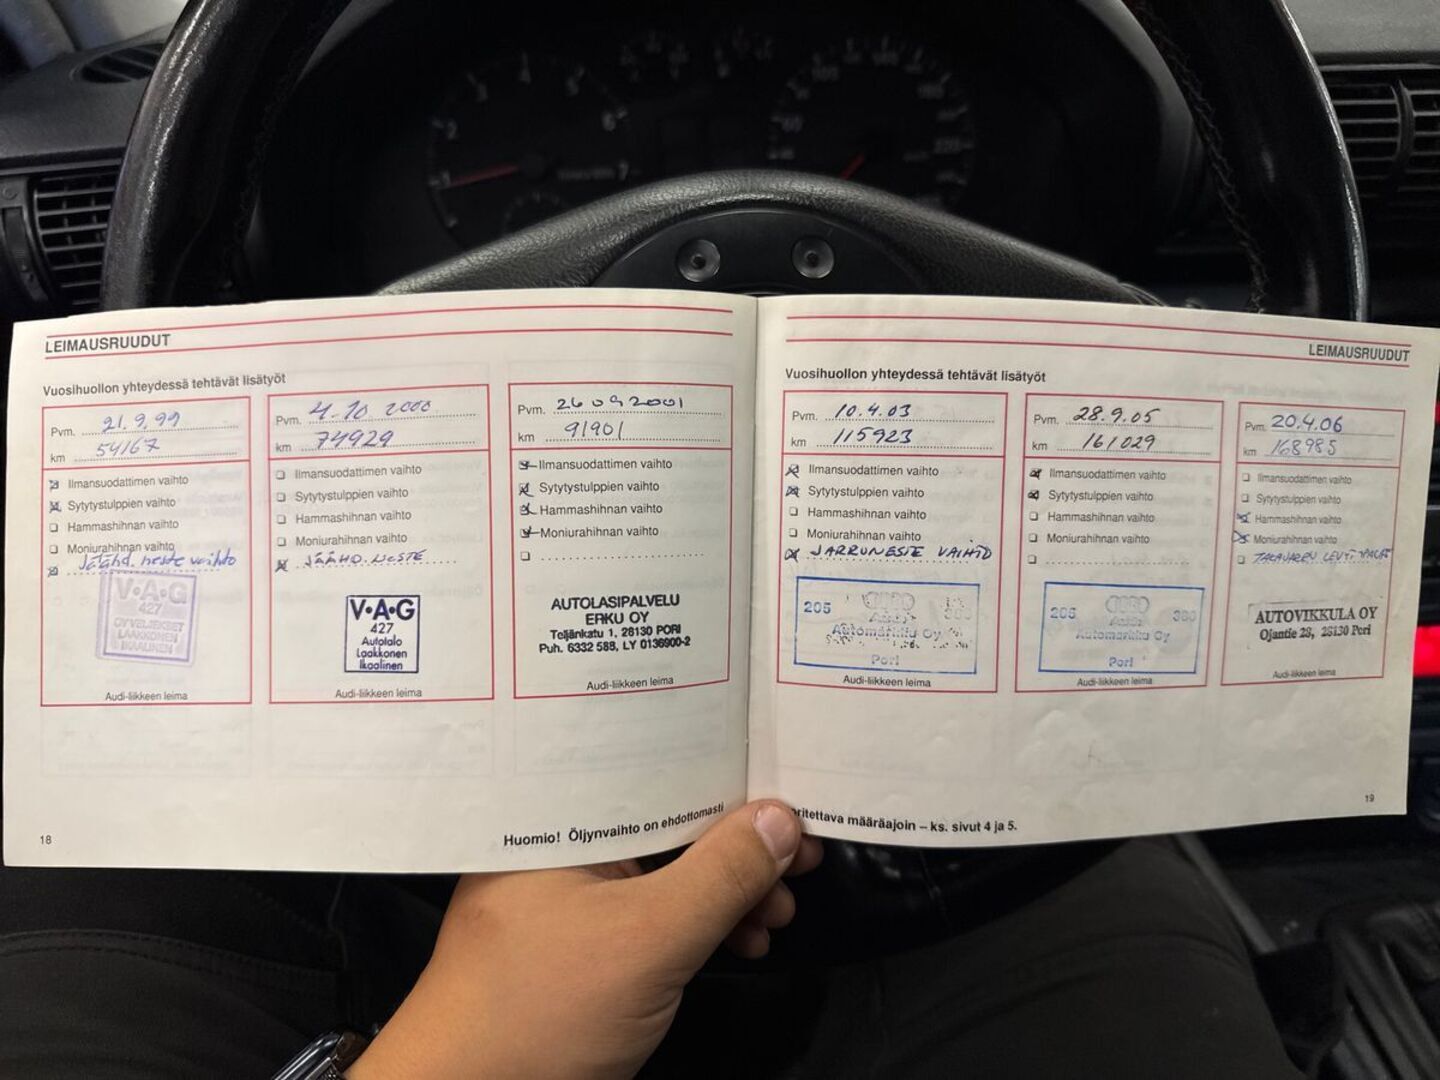 LEIMAUSRUUDUT
Vuosihuollon yhteydessä tehtävät lisätyöt
Pvm. 21.9.99
km 54167
Ilmansuodattimen vaihto
Sytytystulppien vaihto
Hammashihnan vaihto
Moniurahihnan vaihto
Jäähd. neste vaihto
V•A•G
427
OY VELJEKSET
LAAKKONEN
IKAALINEN
Audi-liikkeen leima
Pvm. 4.10 2000
km 74929
Ilmansuodattimen vaihto
Sytytystulppien vaihto
Hammashihnan vaihto
Moniurahihnan vaihto
JÄÄHD. NESTE
V•A•G
427
Autotalo
Laakkonen
Ikaalinen
Audi-liikkeen leima
Pvm. 26 09 2001
km 91901
Ilmansuodattimen vaihto
Sytytystulppien vaihto
Hammashihnan vaihto
Moniurahihnan vaihto
AUTOLASIPALVELU
ERKU OY
Teljänkatu 1, 28130 PORI
Puh. 6332 588, LY 0136900-2
Audi-liikkeen leima
18
Huomio! Öljynvaihto on ehdottomasti
LEIMAUSRUUDUT
Vuosihuollon yhteydessä tehtävät lisätyöt
Pvm. 10.4.03
km 115923
Ilmansuodattimen vaihto
Sytytystulppien vaihto
Hammashihnan vaihto
Moniurahihnan vaihto
JARRUNESTE VAIHTO
205 380
Automarkku Oy
Pori
Audi-liikkeen leima
Pvm. 28.9.05
km 161029
Ilmansuodattimen vaihto
Sytytystulppien vaihto
Hammashihnan vaihto
Moniurahihnan vaihto
205 380
Automarkku Oy
Pori
Audi-liikkeen leima
Pvm. 20.4.06
km 168985
Ilmansuodattimen vaihto
Sytytystulppien vaihto
Hammashihnan vaihto
Moniurahihnan vaihto
AUTOVIKKULA OY
Ojantie 28, 28130 Pori
Audi-liikkeen leima
19
oritettava määräajoin – ks. sivut 4 ja 5.